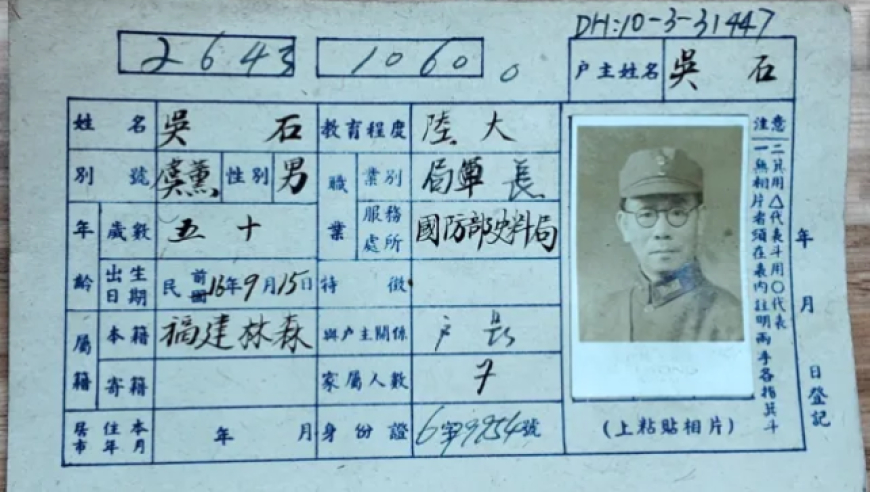 DH:10-3-31447
2643 1060。
户主姓名 吳石
姓名 吳石 教育程度 陸大
別號 虞薰 性別 男 職業 業別
年齡 歲數 五十 服務處所 國防部史料局
出生日期 民前國16年9月15日 特徵
屬籍 本籍 福建林森 與户主關係 户長
寄籍 家屬人數 7
居住本市年月 年 月 身份證 6字9954號
(上粘貼相片)
注意
一無相片者須在表內註明兩手各指箕斗
二箕用△代表斗用〇代表
年 月 日登記